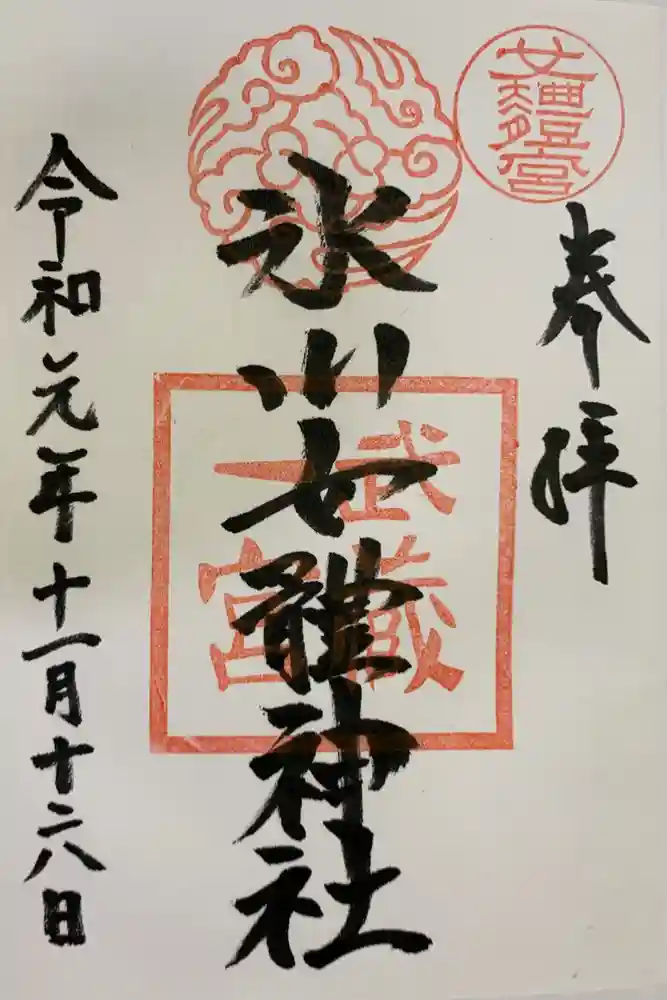 奉拝
女軆宮
氷川女體神社
武蔵
一宮
令和元年十一月十六日